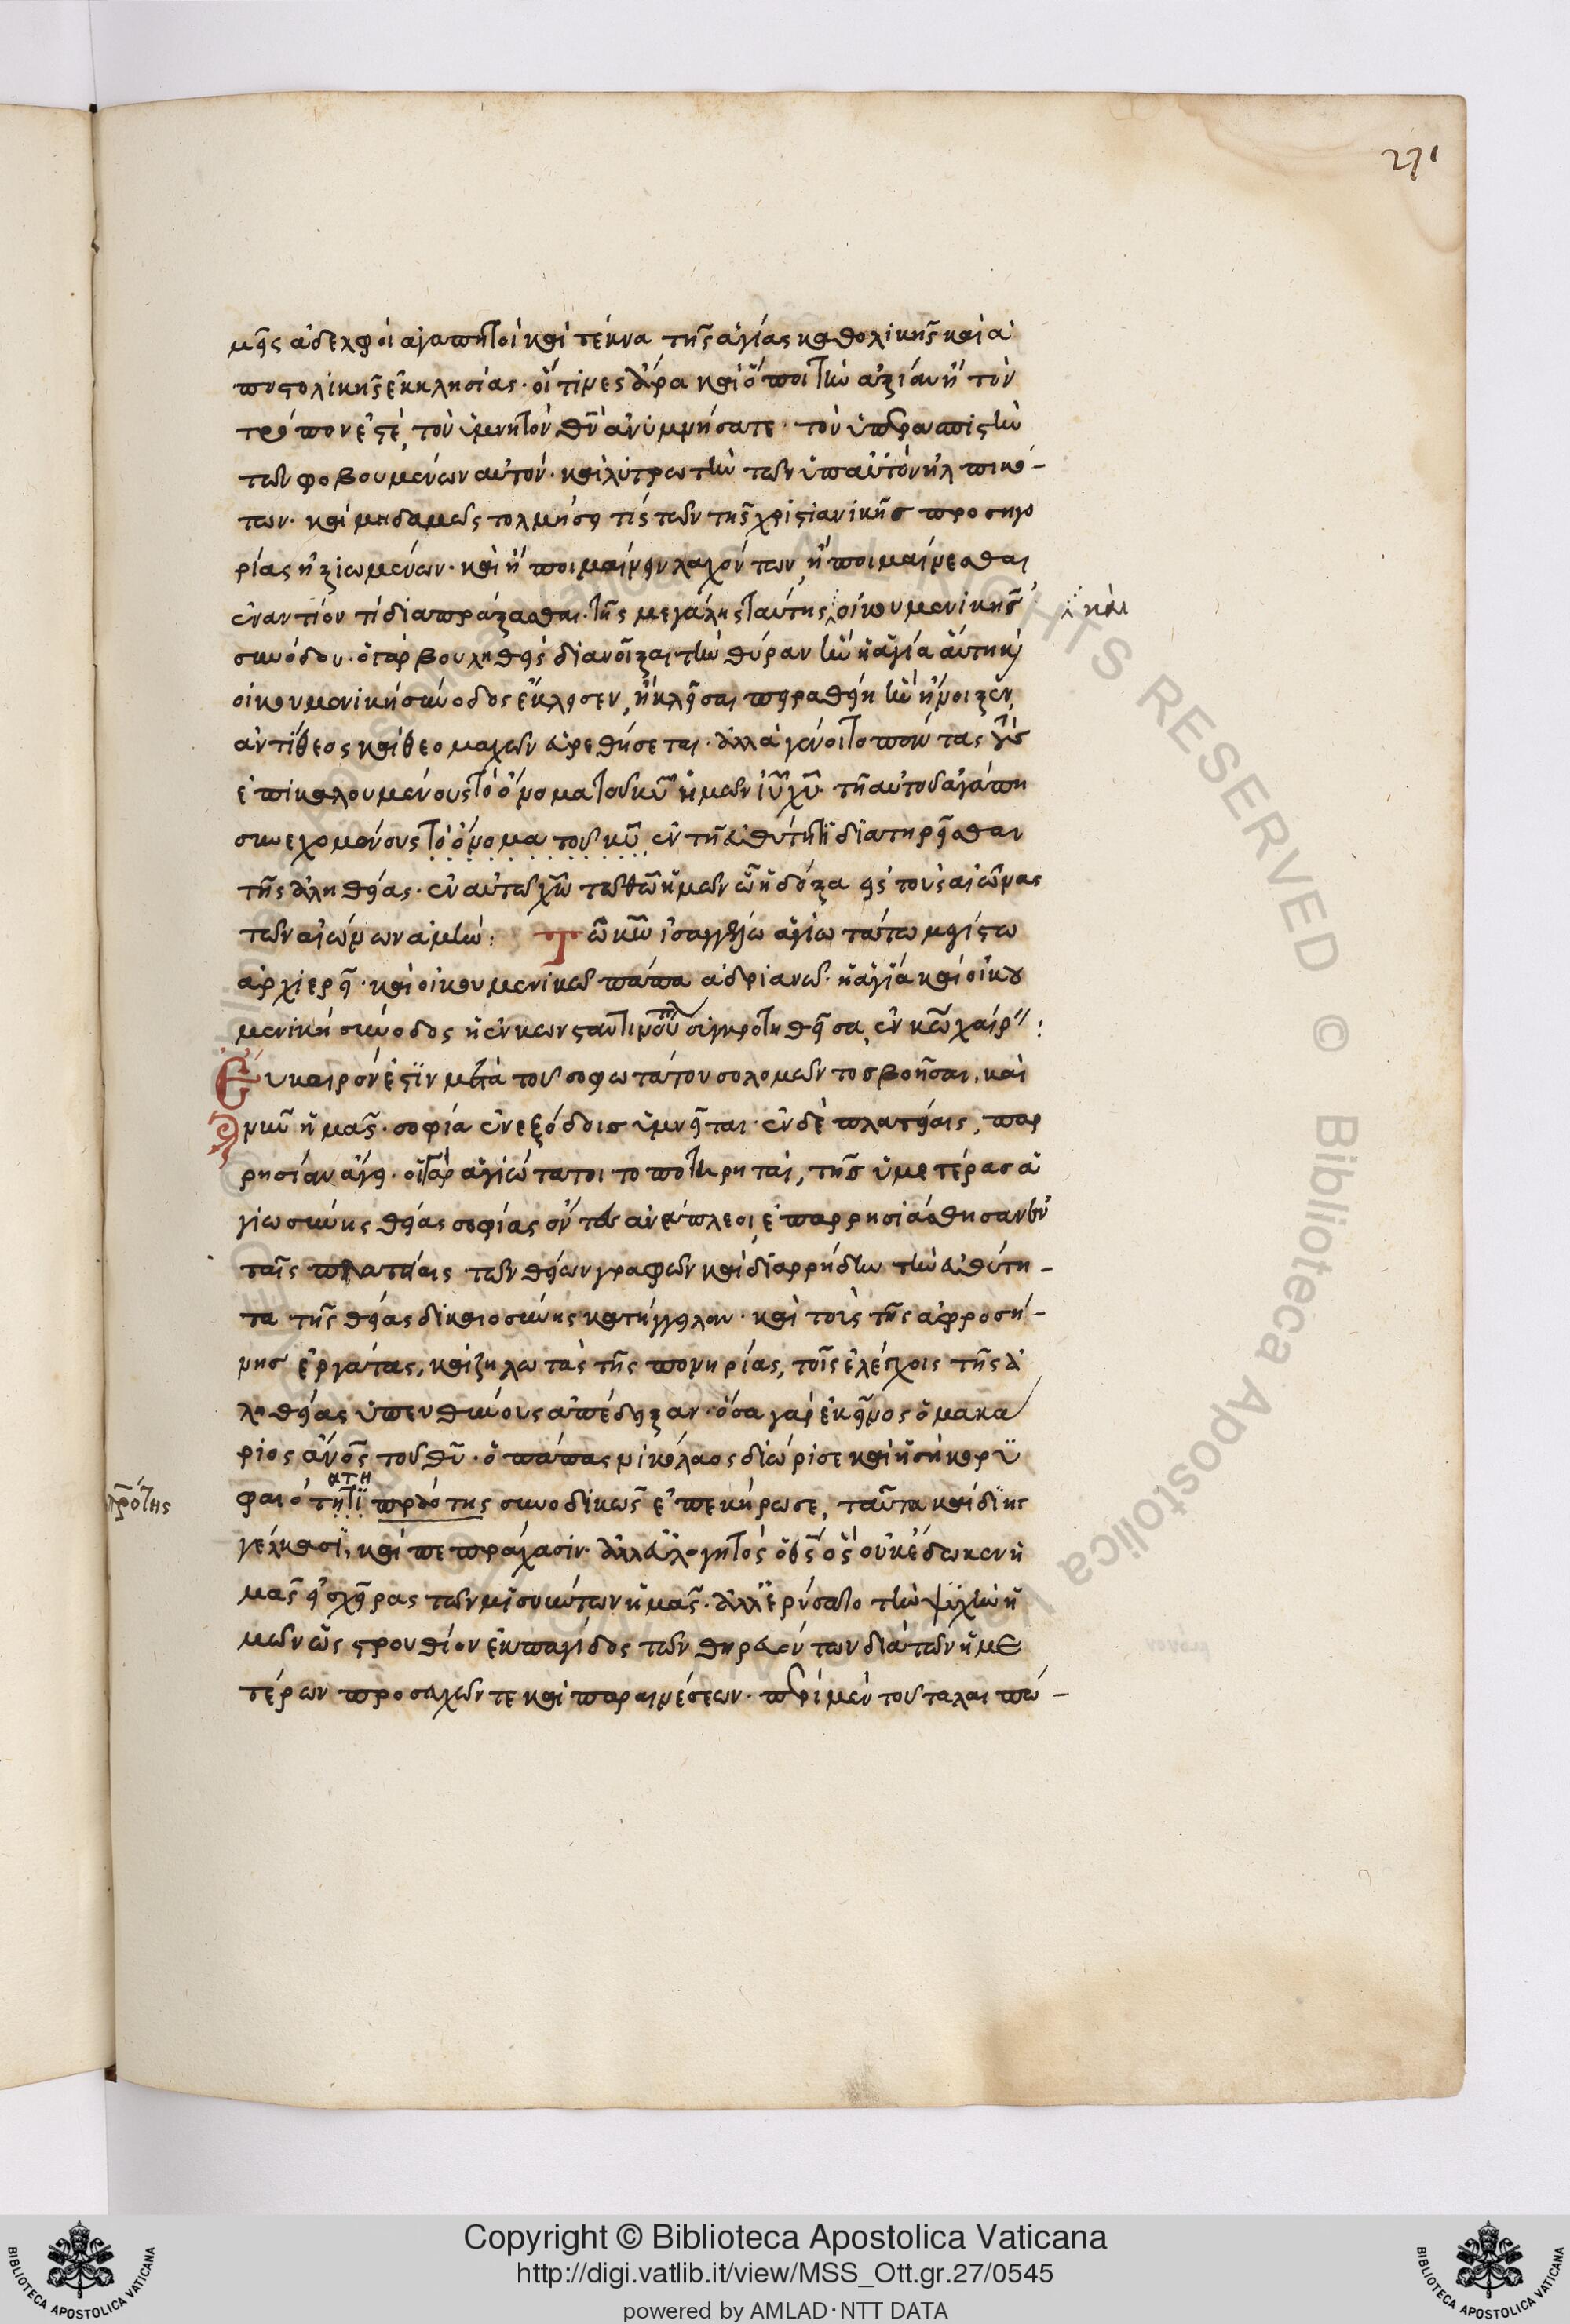 271
μεῖς ἀδελφοὶ ἀγαπητοὶ καὶ τέκνα τῆς ἁγίας καθολικῆς καὶ ἀ
ποστολικῆς ἐκκλησίας. οἵτινες ἄρα καὶ ὅποι τὴν ἀξίαν ἢ τὸν
τρόπον ἐστέ, τὸν ὑμνητὸν θν ἀνυμνήσατε. τὸν ὑπερασπιστὴν
τῶν φοβουμένων αὐτόν. καὶ λυτρωτὴν τῶν ἐπ αὐτὸν ἠλπικό-
των. καὶ μηδαμῶς τολμήσῃ τίς τῶν τῆς χριστιανικῆς προσηγο
ρίας ἠξιωμένων. καὶ ἢ ποιμαίνειν λαχόντων, ἢ ποιμαίνεσθαι
ἐναντίον τί διαπράξασθαι. τῆς μεγάλης ταύτης οἰκουμενικῆς
καὶ
συνόδου. ὅταρ βουληθεὶς διανοῖξαι τὴν θύραν ἣν ἡ ἁγία αὕτη κ
οἰκουμενικὴ σύνοδος ἔκλεισεν, ἢ κλεῖσαι πειραθείη ἣν ἤνοιξεν,
ἀντίθεος καὶ θεομαχῶν εὑρεθήσεται. ἀλλὰ γένοιτο πάντας
ἐπικαλουμένους τὸ ὄνομα τοῦ κυ ἡμῶν ιυ χυ. τῇ αὐτοῦ ἀγάπῃ
συνεχομένους τὸ ὄνομα τοῦ κυ, ἐν τῇ εὐθύτητι διατηρεῖσθαι
τῆς ἀληθείας. ἐν αὐτῷ χω τῷ θω ἡμῶν ᾧ ἡ δόξα εἰς τοὺς αἰῶνας
τῶν αἰώνων ἀμήν: Τῷ κω ἰσαγγέλῳ ἁγίῳ τάτῳ μεγίστῳ
ἀρχιερεῖ. καὶ οἰκουμενικῷ πάπα ἀδριανῷ. ἡ ἁγία καὶ οἰκου
μενικὴ σύνοδος ἡ ἐν κωνσταντινουπόλ συγκροτηθεῖσα, ἐν κω χαίρ:
Εὔκαιρόν ἐστιν μετὰ τοῦ σοφωτάτου σολομῶντος βοῆσαι, καὶ
νῦν ἡμᾶς. σοφία ἐν ἐξόδοις ὑμνεῖται. ἐν δὲ πλατείαις, παρ
ρησίαν ἄγει. οἱ γὰρ ἁγιώτατοι τοποτηρηταί, τῆς ὑμετέρας ἁ
γιωσύνης θείας σοφίας ὄντες ἀνάπλεοι, ἐπαρρησιάσθησαν ἐν
ταῖς πλατείαις τῶν θείων γραφῶν καὶ διαρρήδην τὴν εὐθύτη-
τα τῆς θείας δικαιοσύνης κατήγγειλαν. καὶ τοὺς τῆς ἀφροσύ-
νης ἐργάτας, καὶ ζηλωτὰς τῆς πονηρίας, τοῖς ἐλέγχοις τῆς ἀ
ληθείας ὑπευθύνους ἀπέδειξαν. ὅσα γὰρ ἐκεῖνος ὁ μακά
ριος ἄνος τοῦ θυ. ὁ πάπας νικόλαος διώρισε καὶ ἡ σὴ κορυ
φαιότητι πρᾳότης συνοδικῶς ἐπεκύρωσε, ταῦτα καὶ διηγ
ατη
πρᾳότης
γέλκασι, καὶ πεπράχασιν. ἀλλ εὐλογητὸς ὁ θς ὃς οὐκ ἔδωκεν ἡ
μᾶς εἰς χεῖρας τῶν μισούντων ἡμᾶς. ἀλλ ἐρύσατο τὴν ψυχὴν ἡ
μῶν ὡς στρουθίον ἐκ παγίδος τῶν θηρευόντων διὰ τῶν ἡμε
τέρων προσευχῶν τε καὶ παραινέσεων. περὶ μὲν τοῦ ταλαιπώ-
Copyright © Biblioteca Apostolica Vaticana
http://digi.vatlib.it/view/MSS_Ott.gr.27/0545
powered by AMLAD·NTT DATA